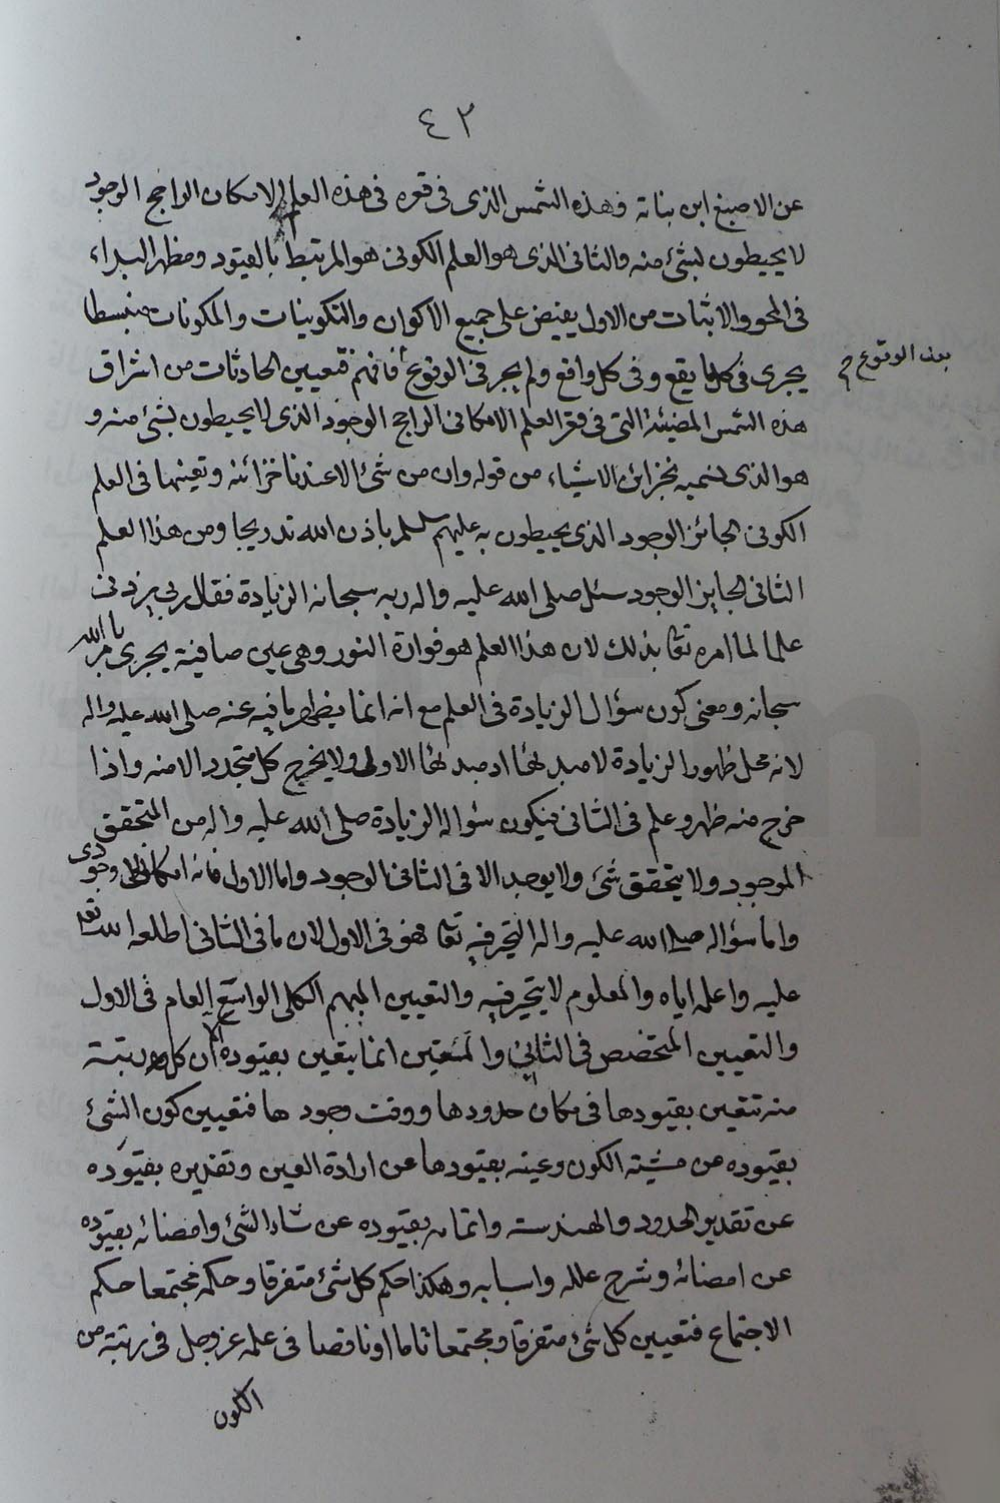 ٤٣
عن الاصبغ ابن بناته فهذه الشمس الذى فى قعره فى هذه العلم الامكان الراجح الوجود
لا يحيطون بشئ منه والثانى الذى هو العلم الكونى هو المرتبط بالقيود ومظهر البداء
فى المحو والاثبات من الاول يفيض على جميع الاكوان والتكوينات والمكونات منبسطا
يجرى فى كل ما يقع وفى كل واقع ولم يجر فى الوقوع فافهم فتعيين الحادثات من اشراق
بعد الوقوع
هذه الشمس المضيئة التى فى قعر العلم الامكانى الراجح الوجود الذى لا يحيطون بشئ منه و
هو الذى نسميه بخزائن الاشياء من قوله وان من شئ الا عندنا خزائنه وتعينها فى العلم
الكونى الجائز الوجود الذى يحيطون به عليهم سلم باذن الله تدريجا ومن هذا العلم
الثانى الجايز الوجود سئل صلى الله عليه واله ربه سبحانه الزيادة فقال رب زدنى
علما لما امره تعا بذلك لان هذا العلم هو فوارة النور وهى عين صافية يجرى بامر الله
سبحانه ومعنى كون سؤال الزيادة فى العلم مع انه انما يظهر ما فيه عنه صلى الله عليه واله
لانه محل ظهور الزيادة لا مبدئها اذ مبدئها الاولى ولا يخرج كل متجدد الا منه واذا
خرج منه ظهر وعلم فى الثانى فيكون سؤاله الزيادة صلى الله عليه واله من المتحقق
الموجود ولا يتحقق شئ ولا يوجد الا فى الثانى الوجود واما الاول فانه امكانى لا وجودى
واما سؤاله صلى الله عليه واله التحير فيه تعا فهو فى الاول لان ما فى الثانى اطلعه الله تعا
عليه واعلمه اياه والمعلوم لا يتحير فيه والتعيين المبهم الكلى الواسع العام فى الاول
والتعيين المتخصص فى الثانى والمتعين انما يتعين بقيوده لان كل رتبة
منه تتعين بقيودها فى مكان حدودها ووقت وجودها فتعيين كون الشئ
بقيوده من مشية الكون وعينه بقيودها عن ارادة العين وتقديره بقيوده
عن تقدير الحدود والهندسة واتمامه بقيوده عن الشئ وامضائه بقيوده
عن امضائه وشرح علله واسبابه وهكذا حكم كل شئ متفرقا وحكمه مجتمعا حكم
الاجتماع فتعيين كل شئ متفرقا ومجتمعا تاما او ناقصا فى علمه عز وجل فى رتبة من
الكون